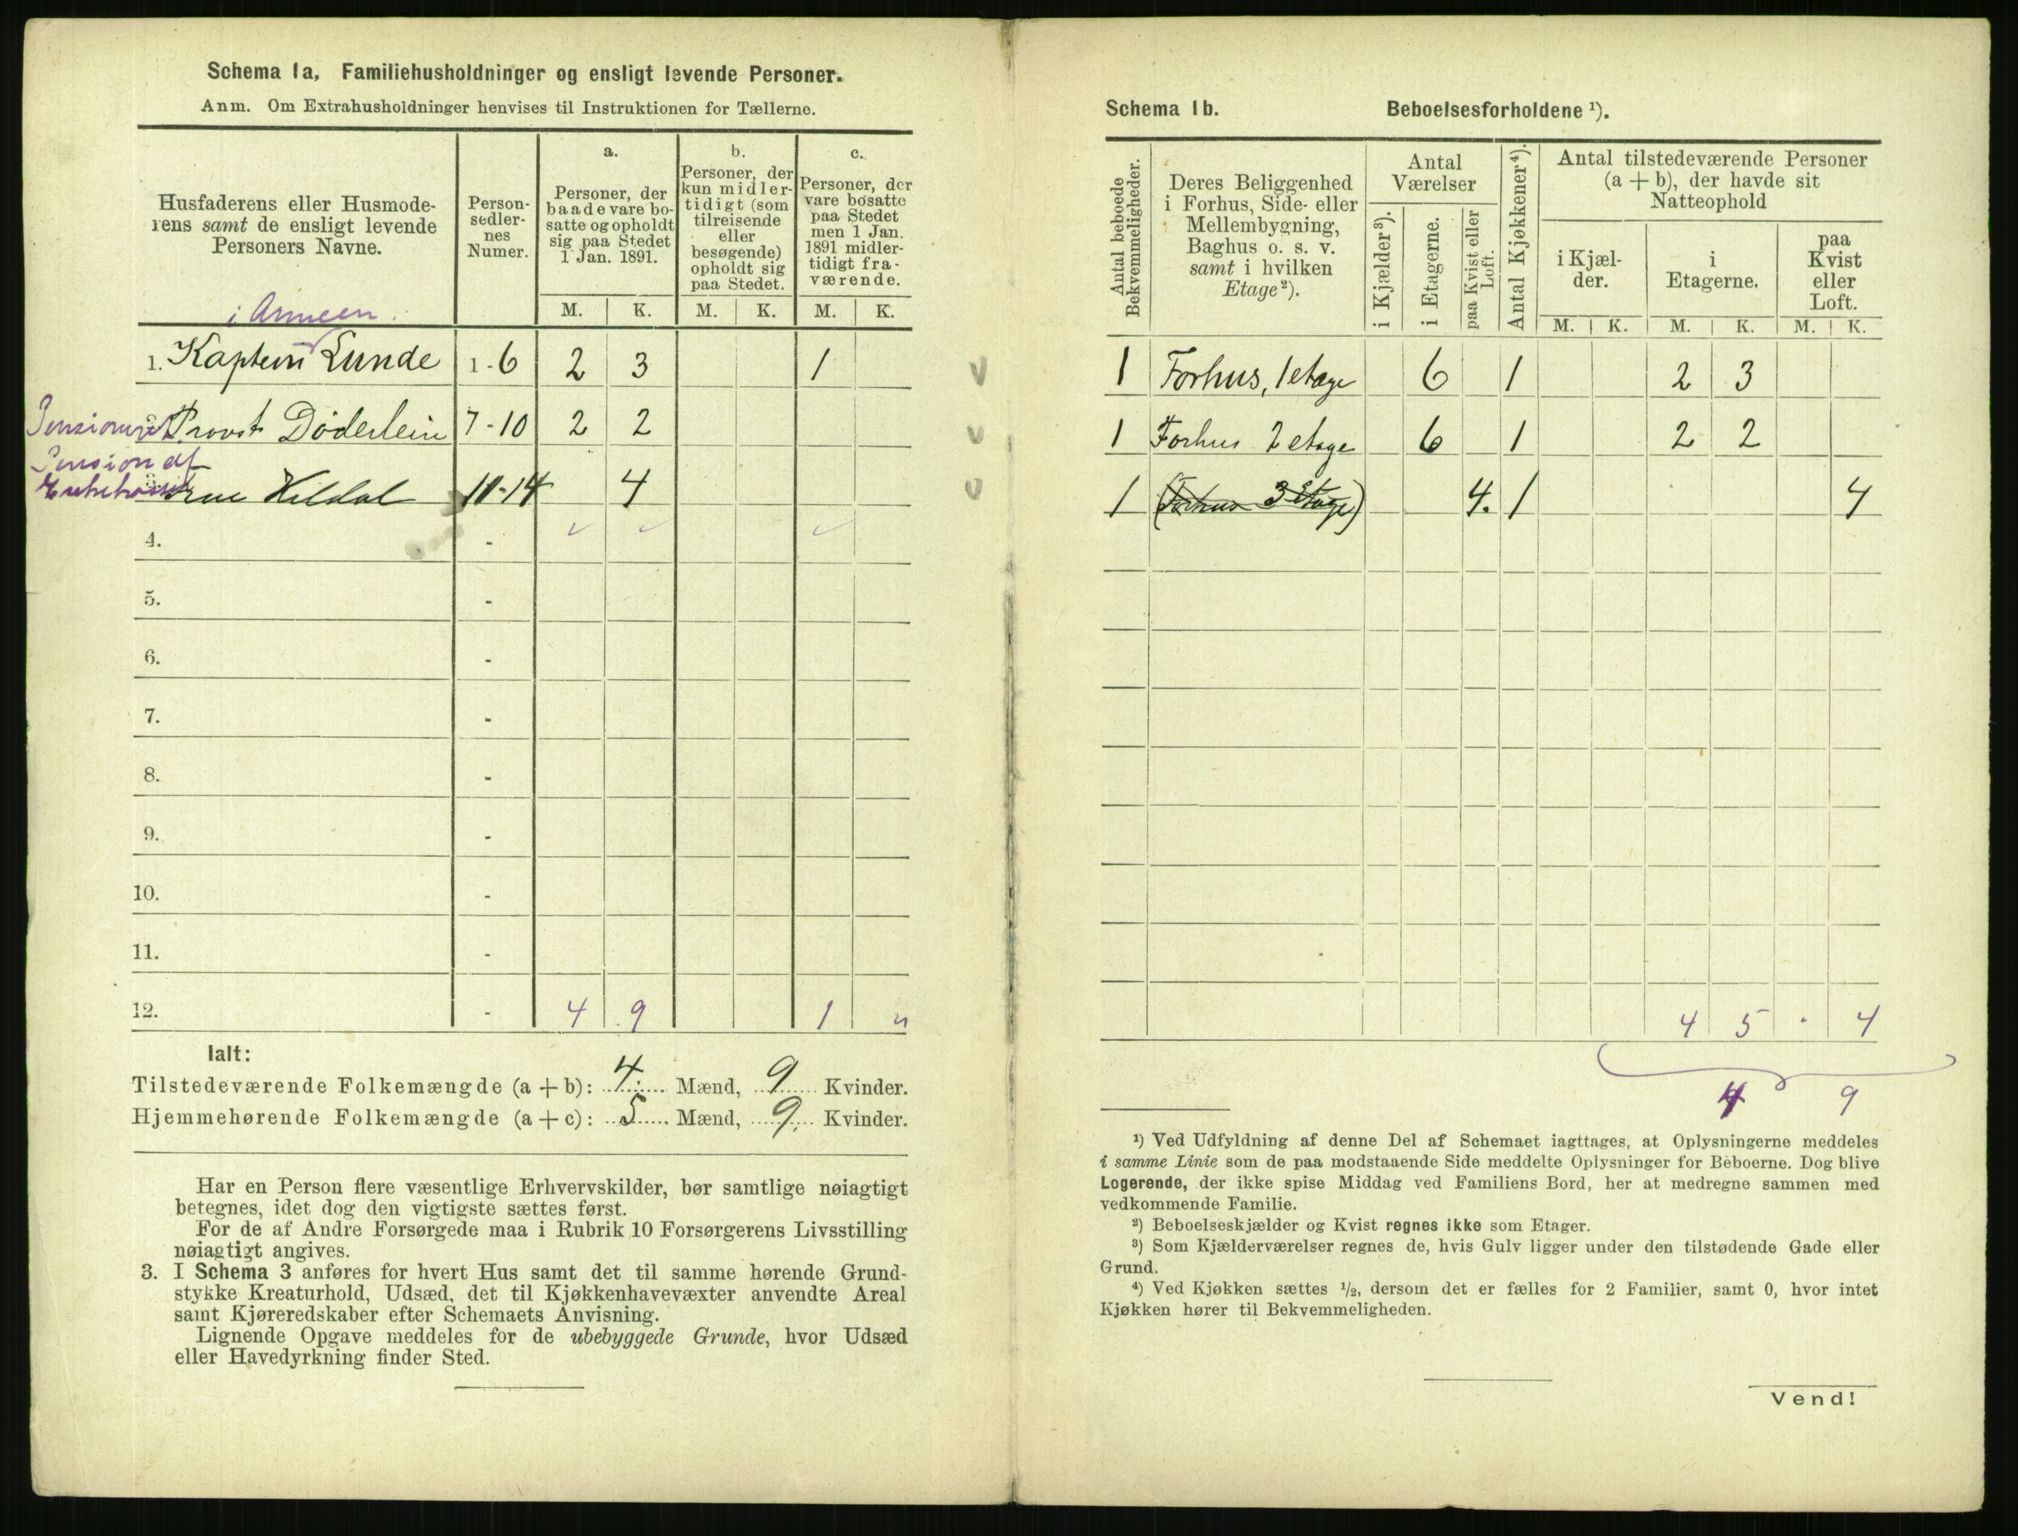 Schema 1a. Familiehusholdninger og ensligt levende Personer.
Anm. Om Extrahusholdninger henvises til Instruktionen for Tællerne.
Husfaderens eller Husmode-
rens samt de ensligt levende
Personers Navne.
Person-
sedler-
nes
Numer.
a.
Personer, der
baade vare bo-
satte og opholdt
sig paa Stedet
1 Jan. 1891.
b.
Personer, der
kun midler-
tidigt (som
tilreisende
eller
besøgende)
opholdt sig
paa Stedet.
c.
Personer, der
vare bosatte
paa Stedet
men 1 Jan.
1891 midler-
tidigt fra-
værende.
M. K. M. K. M. K.
i Armeen.
1. Kaptein Lunde 1-6 2 3 1
Pensioneret Provst Døderlein 7-10 2 2
Pension af
Enkekassen Frue Heldal 11-14 4
4. -
5. -
6. -
7. -
8. -
9. -
10. -
11. -
12. - 4 9 1 "
Ialt:
Tilstedeværende Folkemængde (a + b): 4. Mænd, 9 Kvinder.
Hjemmehørende Folkemængde (a + c): 5 Mænd, 9. Kvinder.
Har en Person flere væsentlige Erhvervskilder, bør samtlige nøiagtigt
betegnes, idet dog den vigtigste sættes først.
For de af Andre Forsørgede maa i Rubrik 10 Forsørgerens Livsstilling
nøiagtigt angives.
3. I Schema 3 anføres for hvert Hus samt det til samme hørende Grund-
stykke Kreaturhold, Udsæd, det til Kjøkkenhavevæxter anvendte Areal
samt Kjøreredskaber efter Schemaets Anvisning.
Lignende Opgave meddeles for de ubebyggede Grunde, hvor Udsæd
eller Havedyrkning finder Sted.
Schema 1b. Beboelsesforholdene ¹).
Antal beboede
Bekvemmeligheder.
Deres Beliggenhed
i Forhus, Side- eller
Mellembygning,
Baghus o. s. v.
samt i hvilken
Etage ²).
Antal
Værelser
i Kjælder ³).
i Etagerne.
paa Kvist eller
Loft.
Antal Kjøkkener ⁴).
Antal tilstedeværende Personer
(a + b), der havde sit
Natteophold
i Kjæl-
der.
i
Etagerne.
paa
Kvist
eller
Loft.
M. K. M. K. M. K.
1 Forhus, 1 etage 6 1 2 3
1 Forhus 2 etage 6 1 2 2
1 (Forhus 3 Etage) 4. 1 4
4 5 · 4
4 9
¹) Ved Udfyldning af denne Del af Schemaet iagttages, at Oplysningerne meddeles
i samme Linie som de paa modstaaende Side meddelte Oplysninger for Beboerne. Dog blive
Logerende, der ikke spise Middag ved Familiens Bord, her at medregne sammen med
vedkommende Familie.
²) Beboelseskjælder og Kvist regnes ikke som Etager.
³) Som Kjælderværelser regnes de, hvis Gulv ligger under den tilstødende Gade eller
Grund.
⁴) Ved Kjøkken sættes ½, dersom det er fælles for 2 Familier, samt 0, hvor intet
Kjøkken hører til Bekvemmeligheden.
Vend!